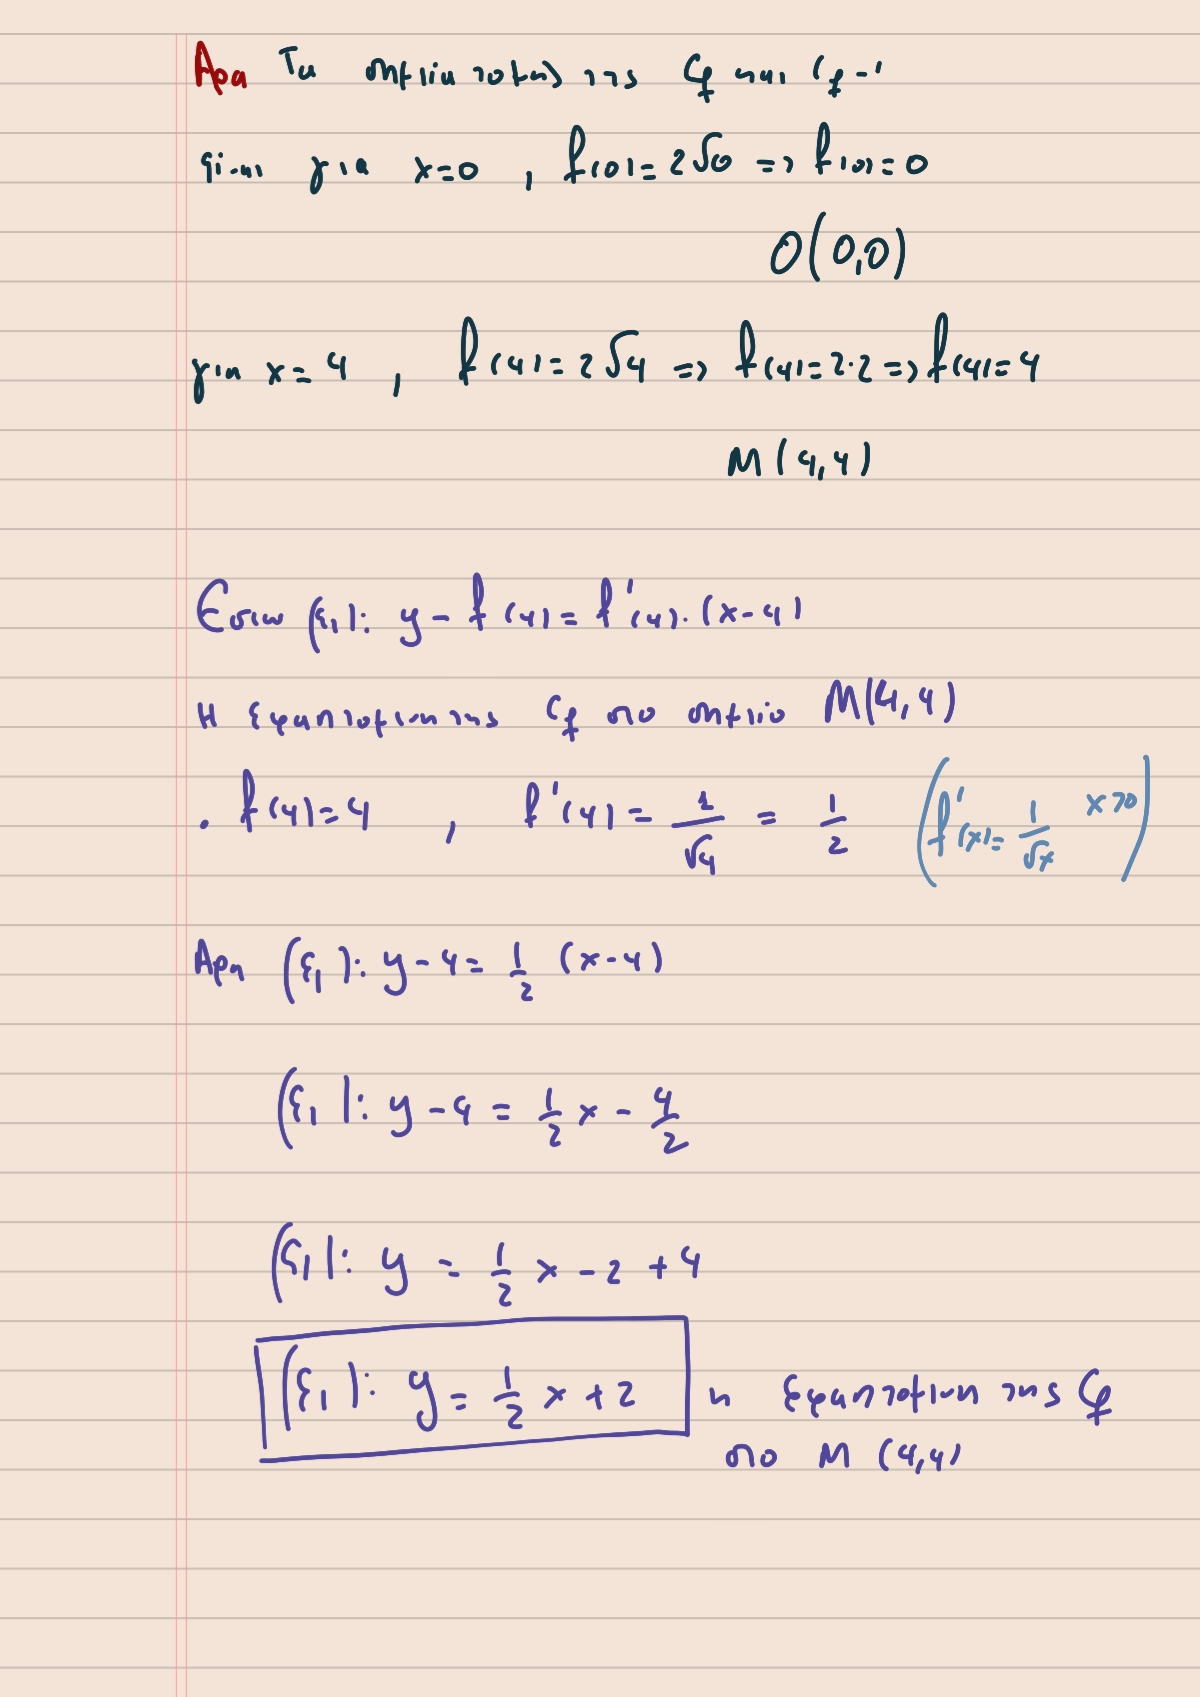 Άρα Τα σημεία τομής της Cf και Cf-1
είναι για x=0 , f(0)=2√0 => f(0)=0
O(0,0)
για x=4 , f(4)=2√4 => f(4)=2·2 => f(4)=4
M(4,4)
Εστω (ε1): y-f(4)=f'(4)·(x-4)
Η εφαπτομενη της Cf στο σημειο M(4,4)
· f(4)=4 , f'(4)=1/√4 = 1/2 (f'(x)=1/√x x>0)
Αρα (ε1): y-4=1/2 (x-4)
(ε1): y-4=1/2 x - 4/2
(ε1): y = 1/2 x - 2 + 4
(ε1): y = 1/2 x + 2 η εφαπτομενη της Cf
στο M (4,4)